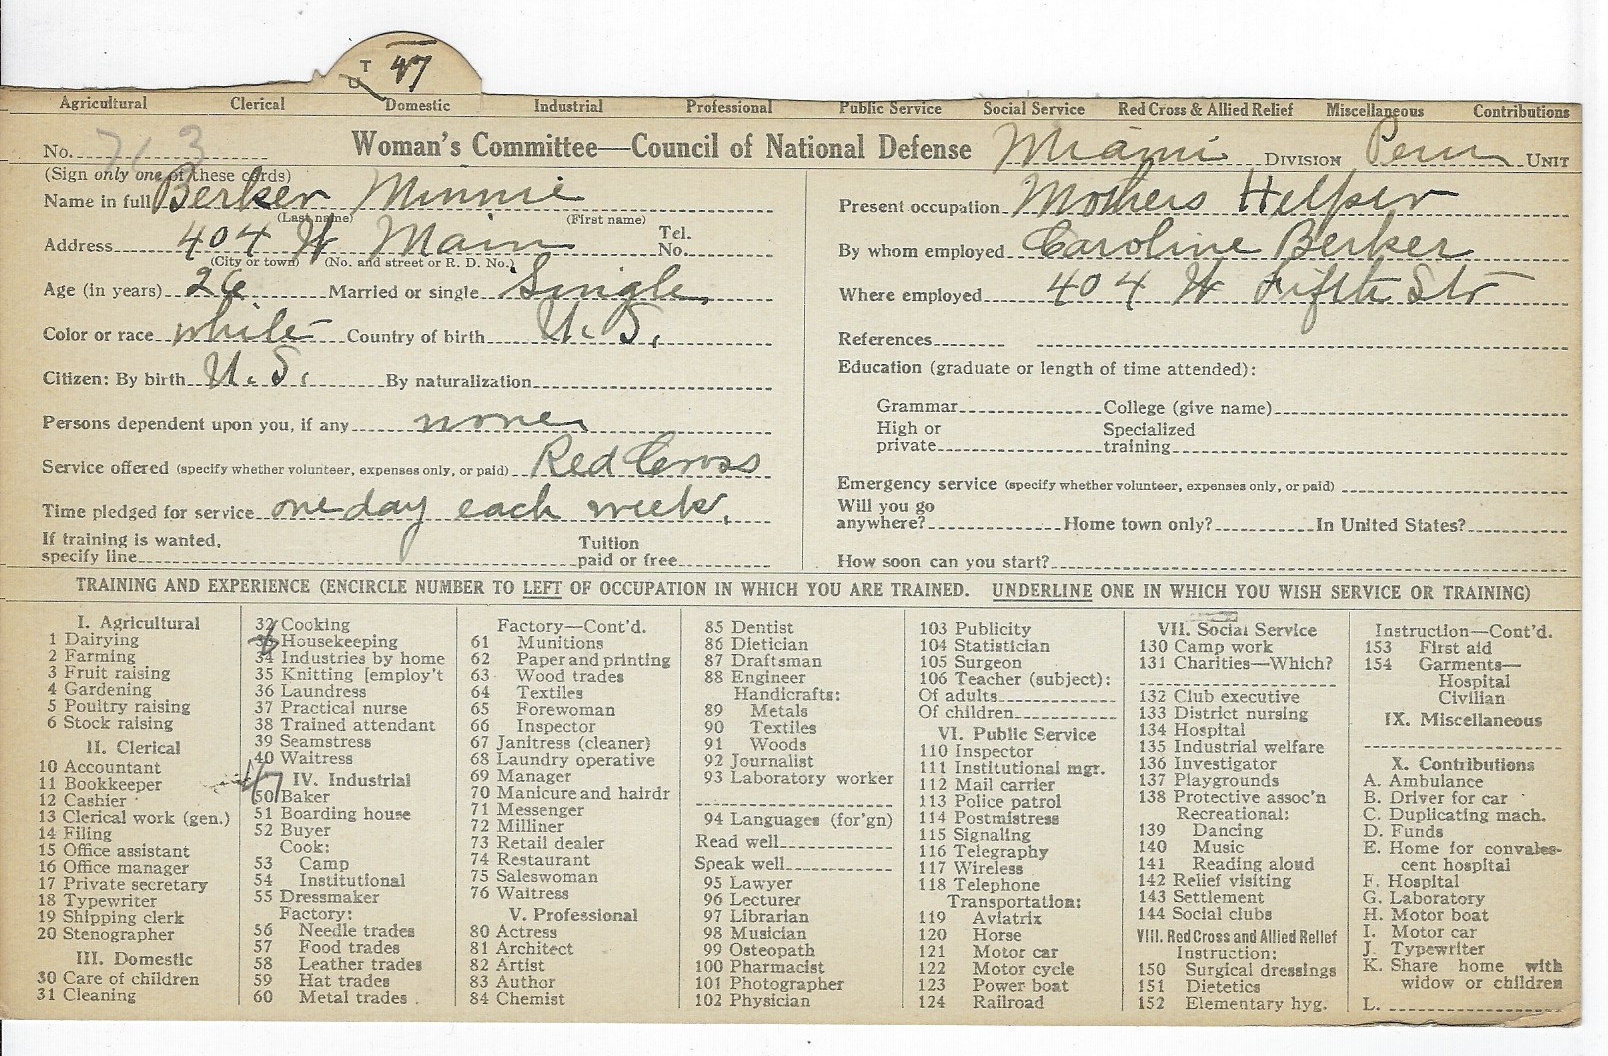 T 47
U
Agricultural Clerical Domestic Industrial Professional Public Service Social Service Red Cross & Allied Relief Miscellaneous Contributions
No. 713 Woman's Committee—Council of National Defense Miami DIVISION Peru UNIT
(Sign only one of these cards)
Name in full Berker Minnie
(Last name) (First name)
Address 404 W Main Tel. No.
(City or town) (No. and street or R. D. No.)
Age (in years) 26 Married or single Single
Color or race white Country of birth U. S.
Citizen: By birth U. S. By naturalization
Persons dependent upon you, if any none
Service offered (specify whether volunteer, expenses only, or paid) Red Cross
Time pledged for service one day each week.
If training is wanted, specify line Tuition paid or free
Present occupation Mothers Helper
By whom employed Caroline Berker
Where employed 404 W Fifth Str
References
Education (graduate or length of time attended):
Grammar College (give name)
High or private Specialized training
Emergency service (specify whether volunteer, expenses only, or paid)
Will you go anywhere? Home town only? In United States?
How soon can you start?
TRAINING AND EXPERIENCE (ENCIRCLE NUMBER TO LEFT OF OCCUPATION IN WHICH YOU ARE TRAINED. UNDERLINE ONE IN WHICH YOU WISH SERVICE OR TRAINING)
I. Agricultural
1 Dairying
2 Farming
3 Fruit raising
4 Gardening
5 Poultry raising
6 Stock raising
II. Clerical
10 Accountant
11 Bookkeeper
12 Cashier
13 Clerical work (gen.)
14 Filing
15 Office assistant
16 Office manager
17 Private secretary
18 Typewriter
19 Shipping clerk
20 Stenographer
III. Domestic
30 Care of children
31 Cleaning
32 Cooking
33 Housekeeping
34 Industries by home
35 Knitting [employ't
36 Laundress
37 Practical nurse
38 Trained attendant
39 Seamstress
40 Waitress
47
IV. Industrial
50 Baker
51 Boarding house
52 Buyer
Cook:
53 Camp
54 Institutional
55 Dressmaker
Factory:
56 Needle trades
57 Food trades
58 Leather trades
59 Hat trades
60 Metal trades
Factory—Cont'd.
61 Munitions
62 Paper and printing
63 Wood trades
64 Textiles
65 Forewoman
66 Inspector
67 Janitress (cleaner)
68 Laundry operative
69 Manager
70 Manicure and hairdr
71 Messenger
72 Milliner
73 Retail dealer
74 Restaurant
75 Saleswoman
76 Waitress
V. Professional
80 Actress
81 Architect
82 Artist
83 Author
84 Chemist
85 Dentist
86 Dietician
87 Draftsman
88 Engineer
Handicrafts:
89 Metals
90 Textiles
91 Woods
92 Journalist
93 Laboratory worker
94 Languages (for'gn)
Read well
Speak well
95 Lawyer
96 Lecturer
97 Librarian
98 Musician
99 Osteopath
100 Pharmacist
101 Photographer
102 Physician
103 Publicity
104 Statistician
105 Surgeon
106 Teacher (subject):
Of adults
Of children
VI. Public Service
110 Inspector
111 Institutional mgr.
112 Mail carrier
113 Police patrol
114 Postmistress
115 Signaling
116 Telegraphy
117 Wireless
118 Telephone
Transportation:
119 Aviatrix
120 Horse
121 Motor car
122 Motor cycle
123 Power boat
124 Railroad
VII. Social Service
130 Camp work
131 Charities—Which?
132 Club executive
133 District nursing
134 Hospital
135 Industrial welfare
136 Investigator
137 Playgrounds
138 Protective assoc'n
Recreational:
139 Dancing
140 Music
141 Reading aloud
142 Relief visiting
143 Settlement
144 Social clubs
VIII. Red Cross and Allied Relief
Instruction:
150 Surgical dressings
151 Dietetics
152 Elementary hyg.
Instruction—Cont'd.
153 First aid
154 Garments—
Hospital
Civilian
IX. Miscellaneous
X. Contributions
A. Ambulance
B. Driver for car
C. Duplicating mach.
D. Funds
E. Home for convales-
cent hospital
F. Hospital
G. Laboratory
H. Motor boat
I. Motor car
J. Typewriter
K. Share home with
widow or children
L.